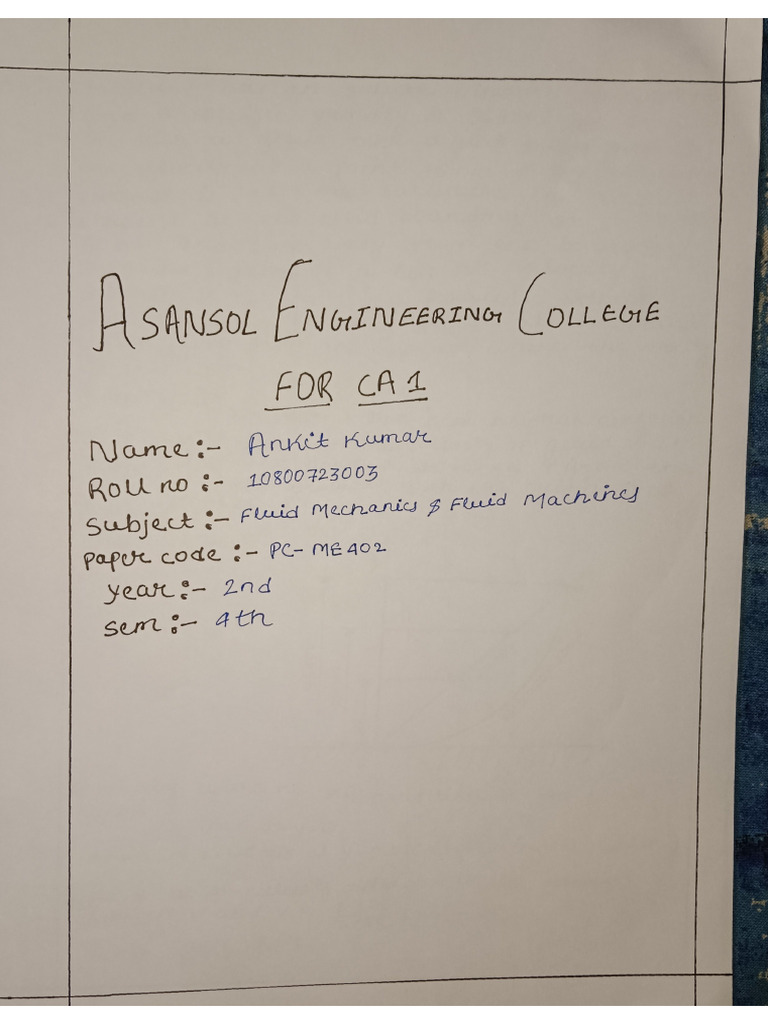 ASANSOL ENGINEERING COLLEGE
FOR CA 1
Name :- Ankit Kumar
Roll no :- 10800723003
Subject :- Fluid Mechanics & Fluid Machines
Paper code :- PC-ME402
Year :- 2nd
Sem :- 4th